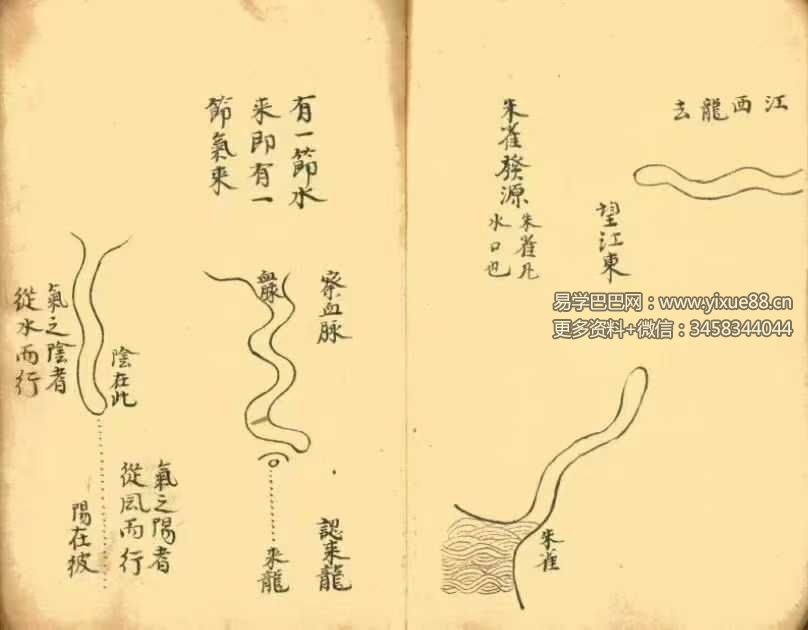 江西龍去
望江東
朱雀發源
朱雀凡
水口也
朱雀
易学巴巴网：www.yixue88.cn
更多资料+微信：3458344044
有一節水
来即有一
節氣来
察血脉
血脉
認来龍
来龍
陰在此
氣之陰者
從水而行
氣之陽者
從風而行
陽在彼